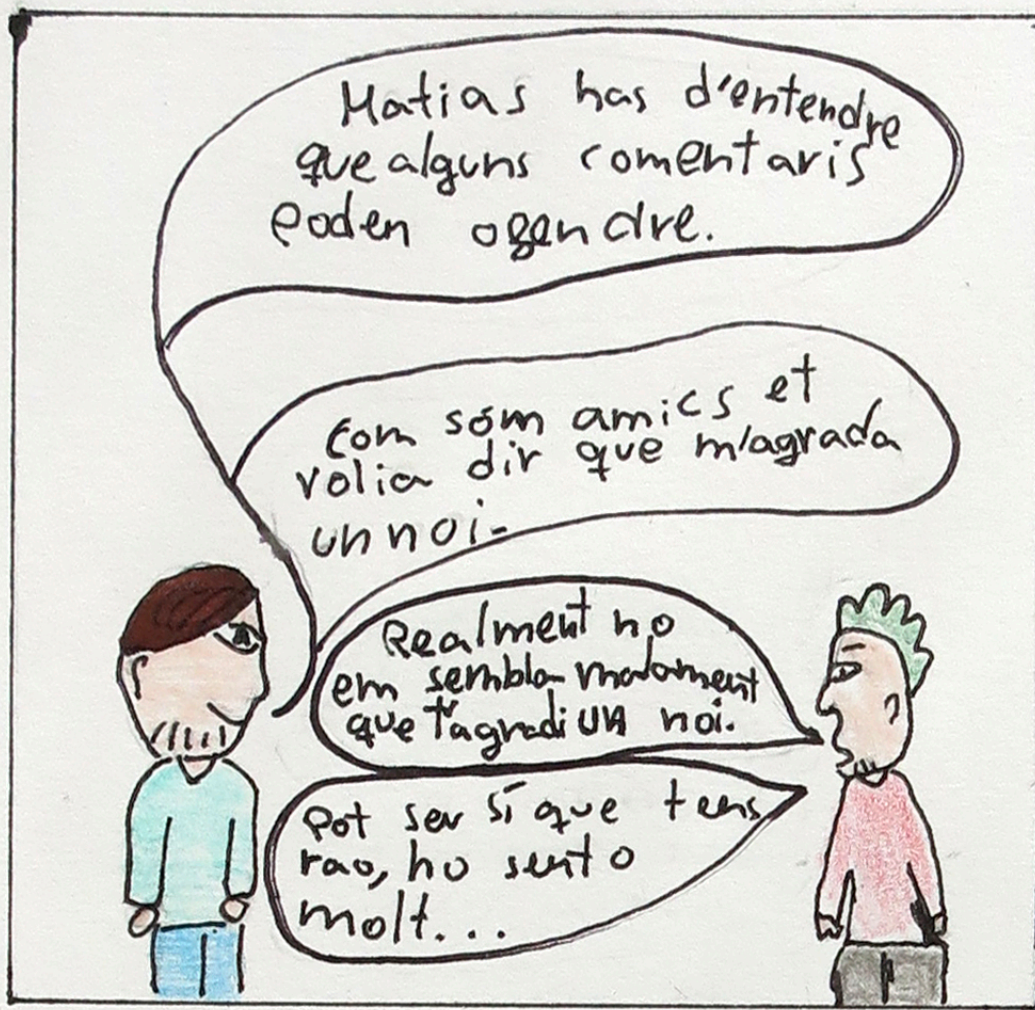 Matias has d'entendre
que alguns comentaris
poden ofendre.
Com som amics et
volia dir que m'agrada
un noi.
Realment no
em sembla malament
que t'agradi un noi.
Pot ser sí que tens
rao, ho sento
molt...